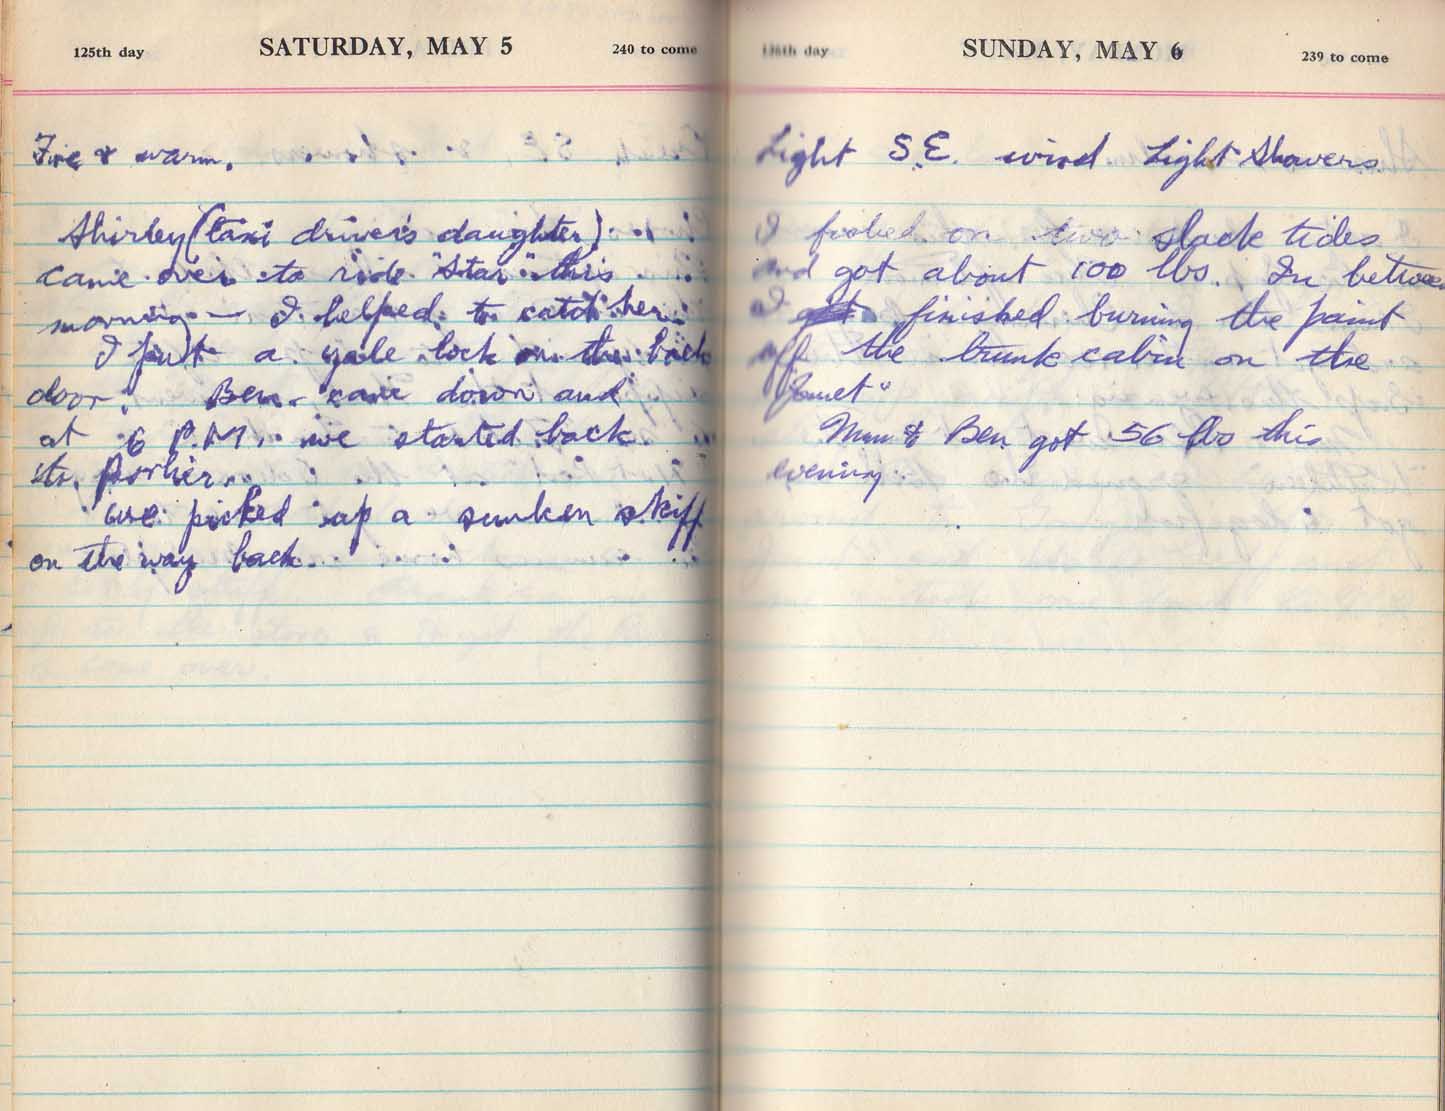 125th day SATURDAY, MAY 5 240 to come
Fine & warm.
Shirley (taxi driver's daughter)
came over to ride "Star" this
morning — I helped to catch her.
I put a yale lock on the back
door. Ben came down and
at 6 P.M. we started back
to Porlier.
we picked up a sunken skiff
on the way back.
126th day SUNDAY, MAY 6 239 to come
Light S.E. wind Light Showers.
I fished on two slack tides
and got about 100 lbs. In between
I finished burning the paint
off the trunk cabin on the
"Janet"
Mum & Ben got 56 lbs this
evening.